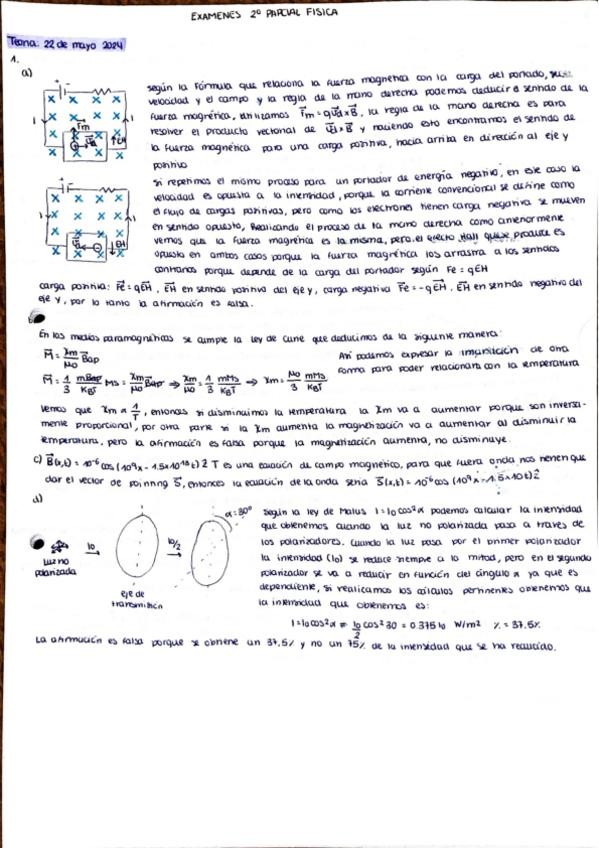 EXAMENES 2º PARCIAL FISICA
Teoria: 22 de mayo 2024
1.
a)
según la fórmula que relaciona la fuerza magnética con la carga del portado,
velocidad y el campo y la regla de la mano derecha podemos deducir el sentido de la
fuerza magnética, utilizamos Fm = q ud x B, la regla de la mano derecha es para
resolver el producto vectorial de ud x B y haciendo esto encontramos el sentido de
la fuerza magnética para una carga positiva, hacia arriba en dirección al eje y
positivo
si repetimos el mismo proceso para un portador de energía negativo, en este caso la
velocidad es opuesta a la intensidad, porque la corriente convencional se define como
el flujo de cargas positivas, pero como los electrones tienen carga negativa se mueven
en sentido opuesto, Realizando el proceso de la mano derecha como
vemos que la fuerza magnética es la misma, pero el efecto Hall que se produce es
opuesto en ambos casos porque la fuerza magnética los arrastra a los sentidos
contrarios porque depende de la carga del portador según Fe = qEH
carga positiva: Fe = qEH, EH en sentido positivo del eje y, carga negativa Fe = -qEH, EH en sentido negativo del
eje y, por lo tanto la afirmación es falsa.
En los medios paramagnéticos se cumple la ley de Curie que deducimos de la siguiente manera:
M = Xm/μ0 Bap
Así podemos expresar la imantación de otra
forma para poder relacionarla con la temperatura
M = 1/3 mBap/KBT Ms = Xm/μ0 Bap → Xm/μ0 = 1/3 mMs/KBT → Xm = μ0/3 mMs/KBT
Vemos que Xm α 1/T, entonces si disminuimos la temperatura la Xm va a aumentar porque son inversa-
mente proporcional, por otra parte si la Xm aumenta la magnetización va a aumentar al disminuir la
temperatura, pero la afirmación es falsa porque la magnetización aumenta, no disminuye.
c) B(x,t) = 10⁻⁶ cos (10⁹x - 1.5x10¹⁸t) ẑ T es una ecuación de campo magnético, para que fuera onda nos tienen que
dar el vector de pointing S, entonces la ecuación de la onda sería S(x,t) = 10⁻⁶ cos (10⁹x - 1.5x10t) ẑ
d)
α = 30º
I0
I0/2
luz no
polarizada
eje de
transmisión
según la ley de Malus I = I0 cos²α podemos calcular la intensidad
que obtenemos cuando la luz no polarizada pasa a través de
los polarizadores. Cuando la luz pasa por el primer polarizador
la intensidad (I0) se reduce siempre a la mitad, pero en el segundo
polarizador se va a reducir en función del ángulo α ya que es
dependiente, si realizamos los cálculos pertinentes obtenemos que
la intensidad que obtenemos es:
I = I0 cos²α = I0/2 cos² 30 = 0.375 I0 W/m² % = 37.5%
La afirmación es falsa porque se obtiene un 37,5% y no un 75% de la intensidad que se ha reducido.